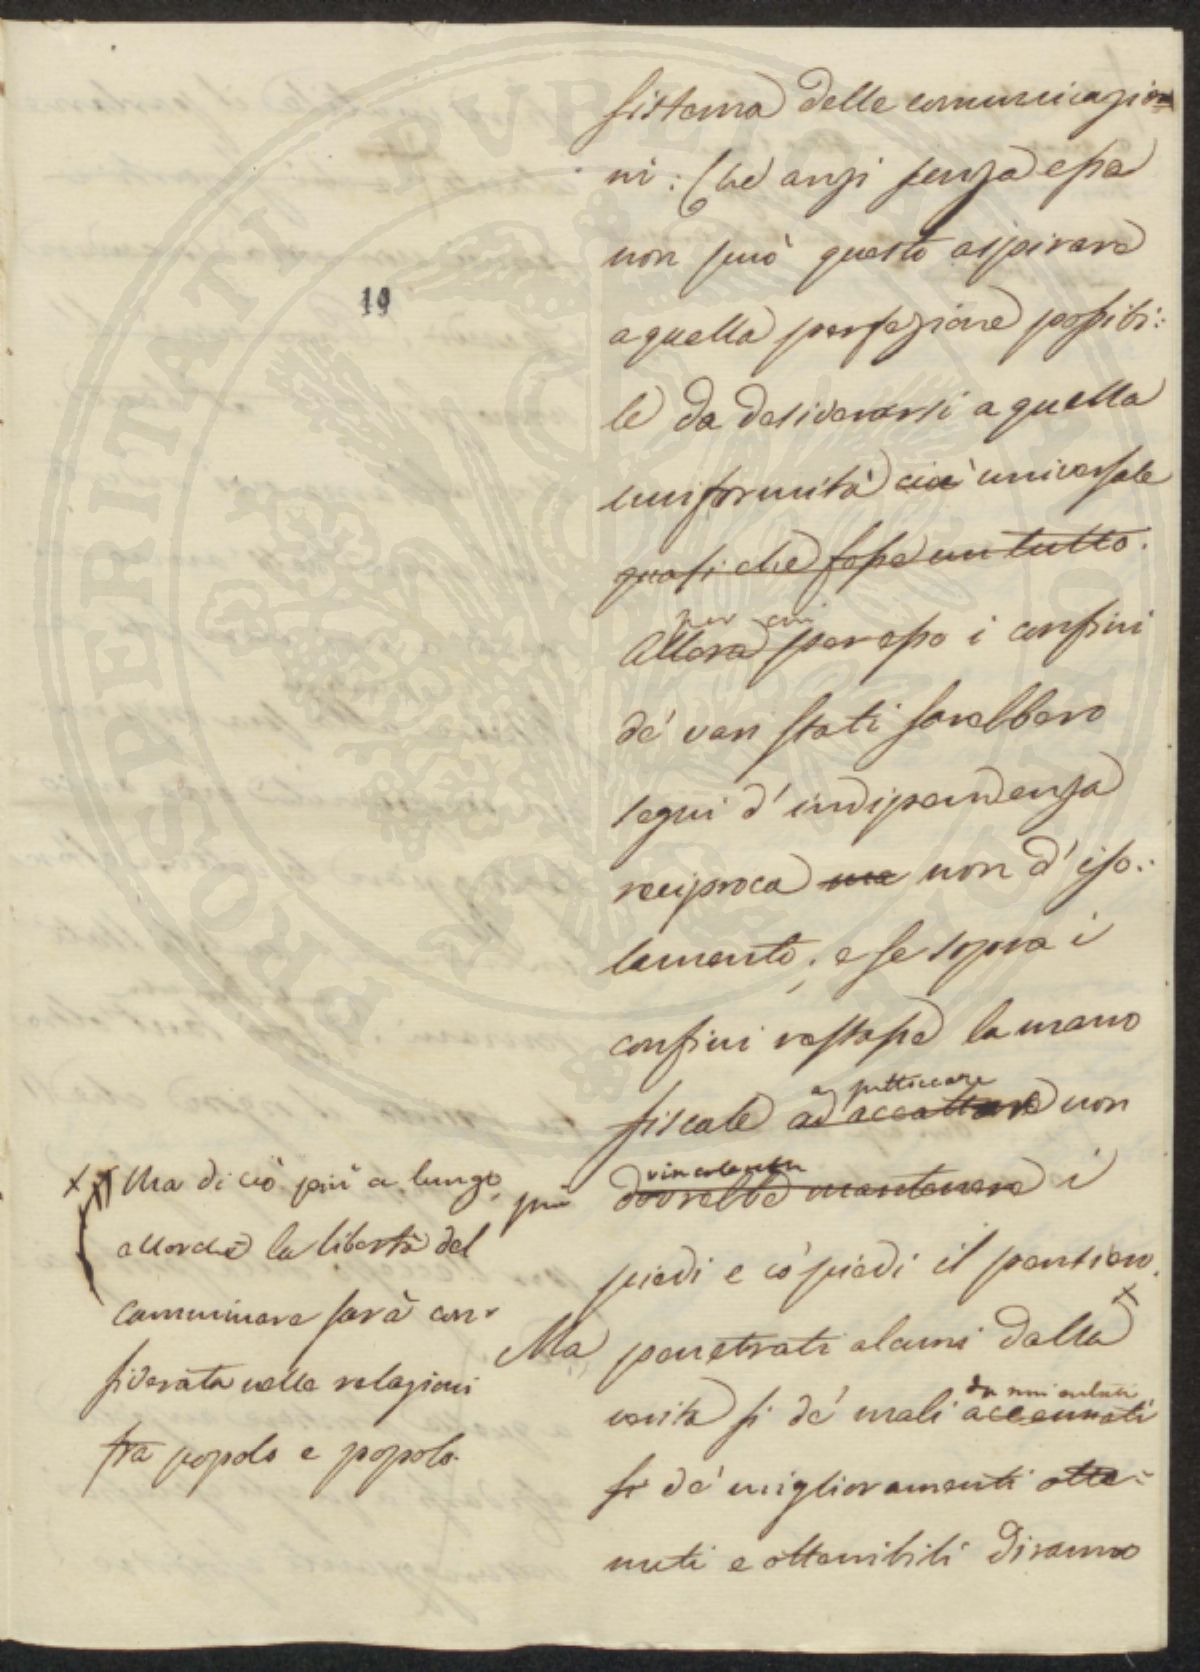 19
sistema delle comunicazio=
ni: Che anzi senza essa
non può questo aspirare
a quella perfezione possibi:
le da desiderarsi a quella
uniformità cioè universale
quasi che fosse un tutto.
per cui
Allora per esso i confini
de' vari stati sarebbero
segni d'indipendenza
reciproca ma non d'iso:
lamento; e se sopra i
confini restasse la mano
a pitoccare
fiscale ad accattare non
più dovrebbe mantenere i
piedi e co' piedi il pensiero.
Ma penetrati alcuni dalla
da noi
verità si de' mali accennati
si de' miglioramenti otte=
nuti e ottenibili diranno
Ma di ciò più a lungo
allorchè la libertà del
camminare sarà con=
siderata nelle relazioni
fra popolo e popolo.
PROSPERITATI PVBLICAE